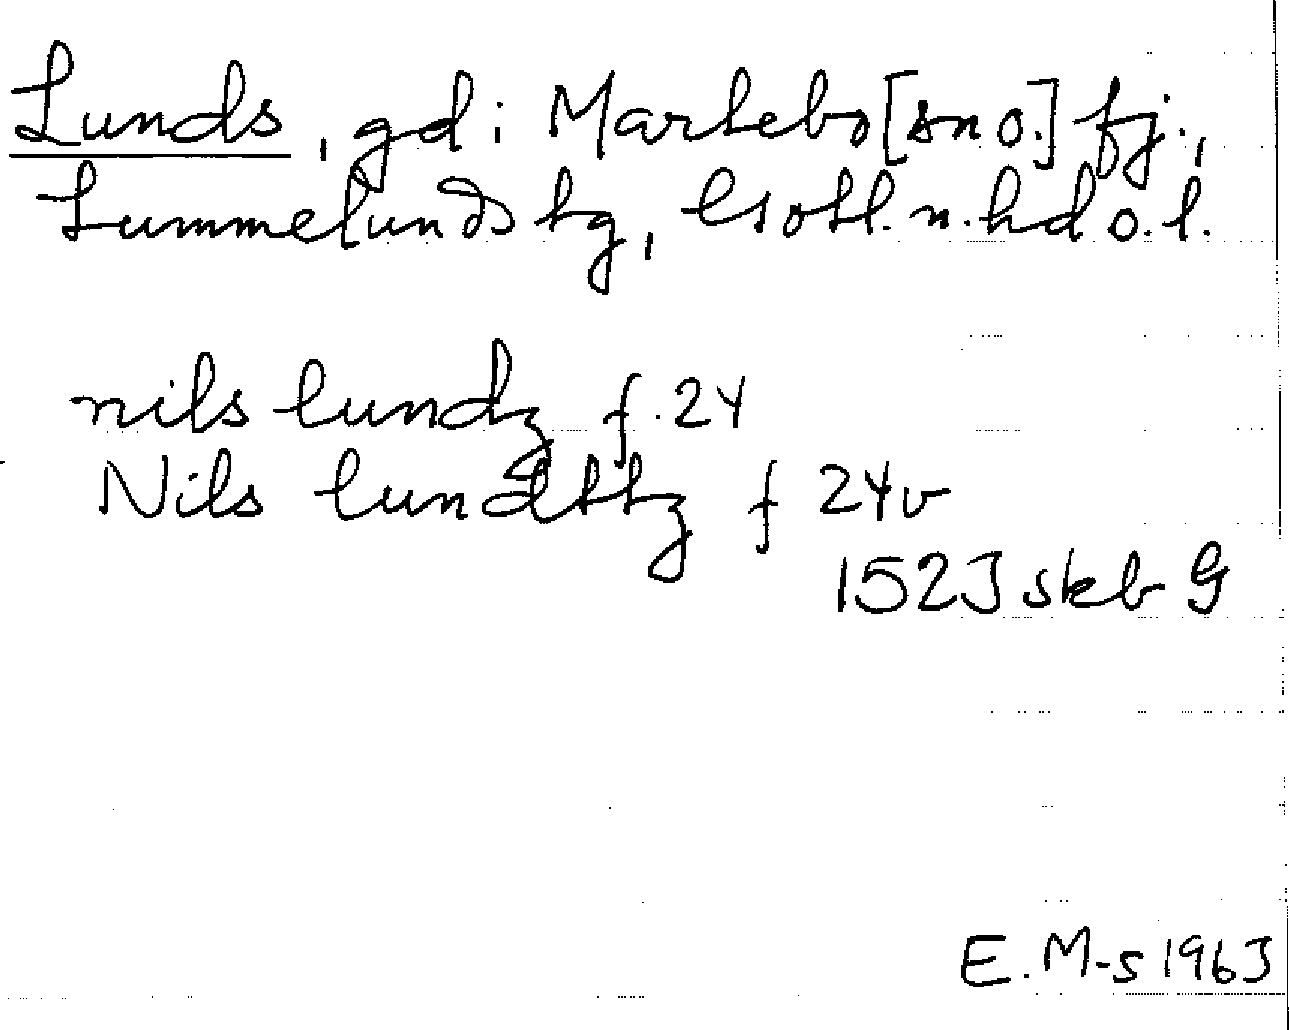 Lunds, gd i Martebo [sn o.] fj.,
Lummelunds tg, Gotl. n. hd o. l.
nils lundz f. 24
Nils lundttz f 24v
1523 skb G
E. M-s 1963